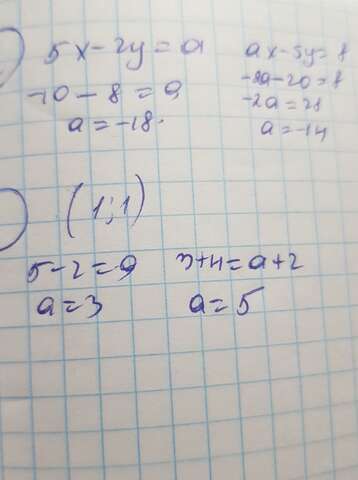 5x-2y=a
-10-8=a
a=-18.
ax-5y=8
-2a-20=8
-2a=28
a=-14
(1;1)
5-2=a
a=3
3+4=a+2
a=5